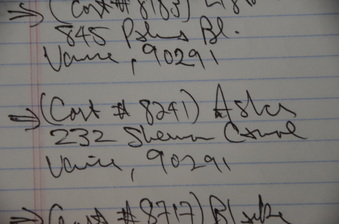 (Cost # 8183)
845 Bl.
Venice, 90291
(Cost # 8241) Asher
232 Sherman Canal
Venice, 90291
(Cost # 8717) Blake